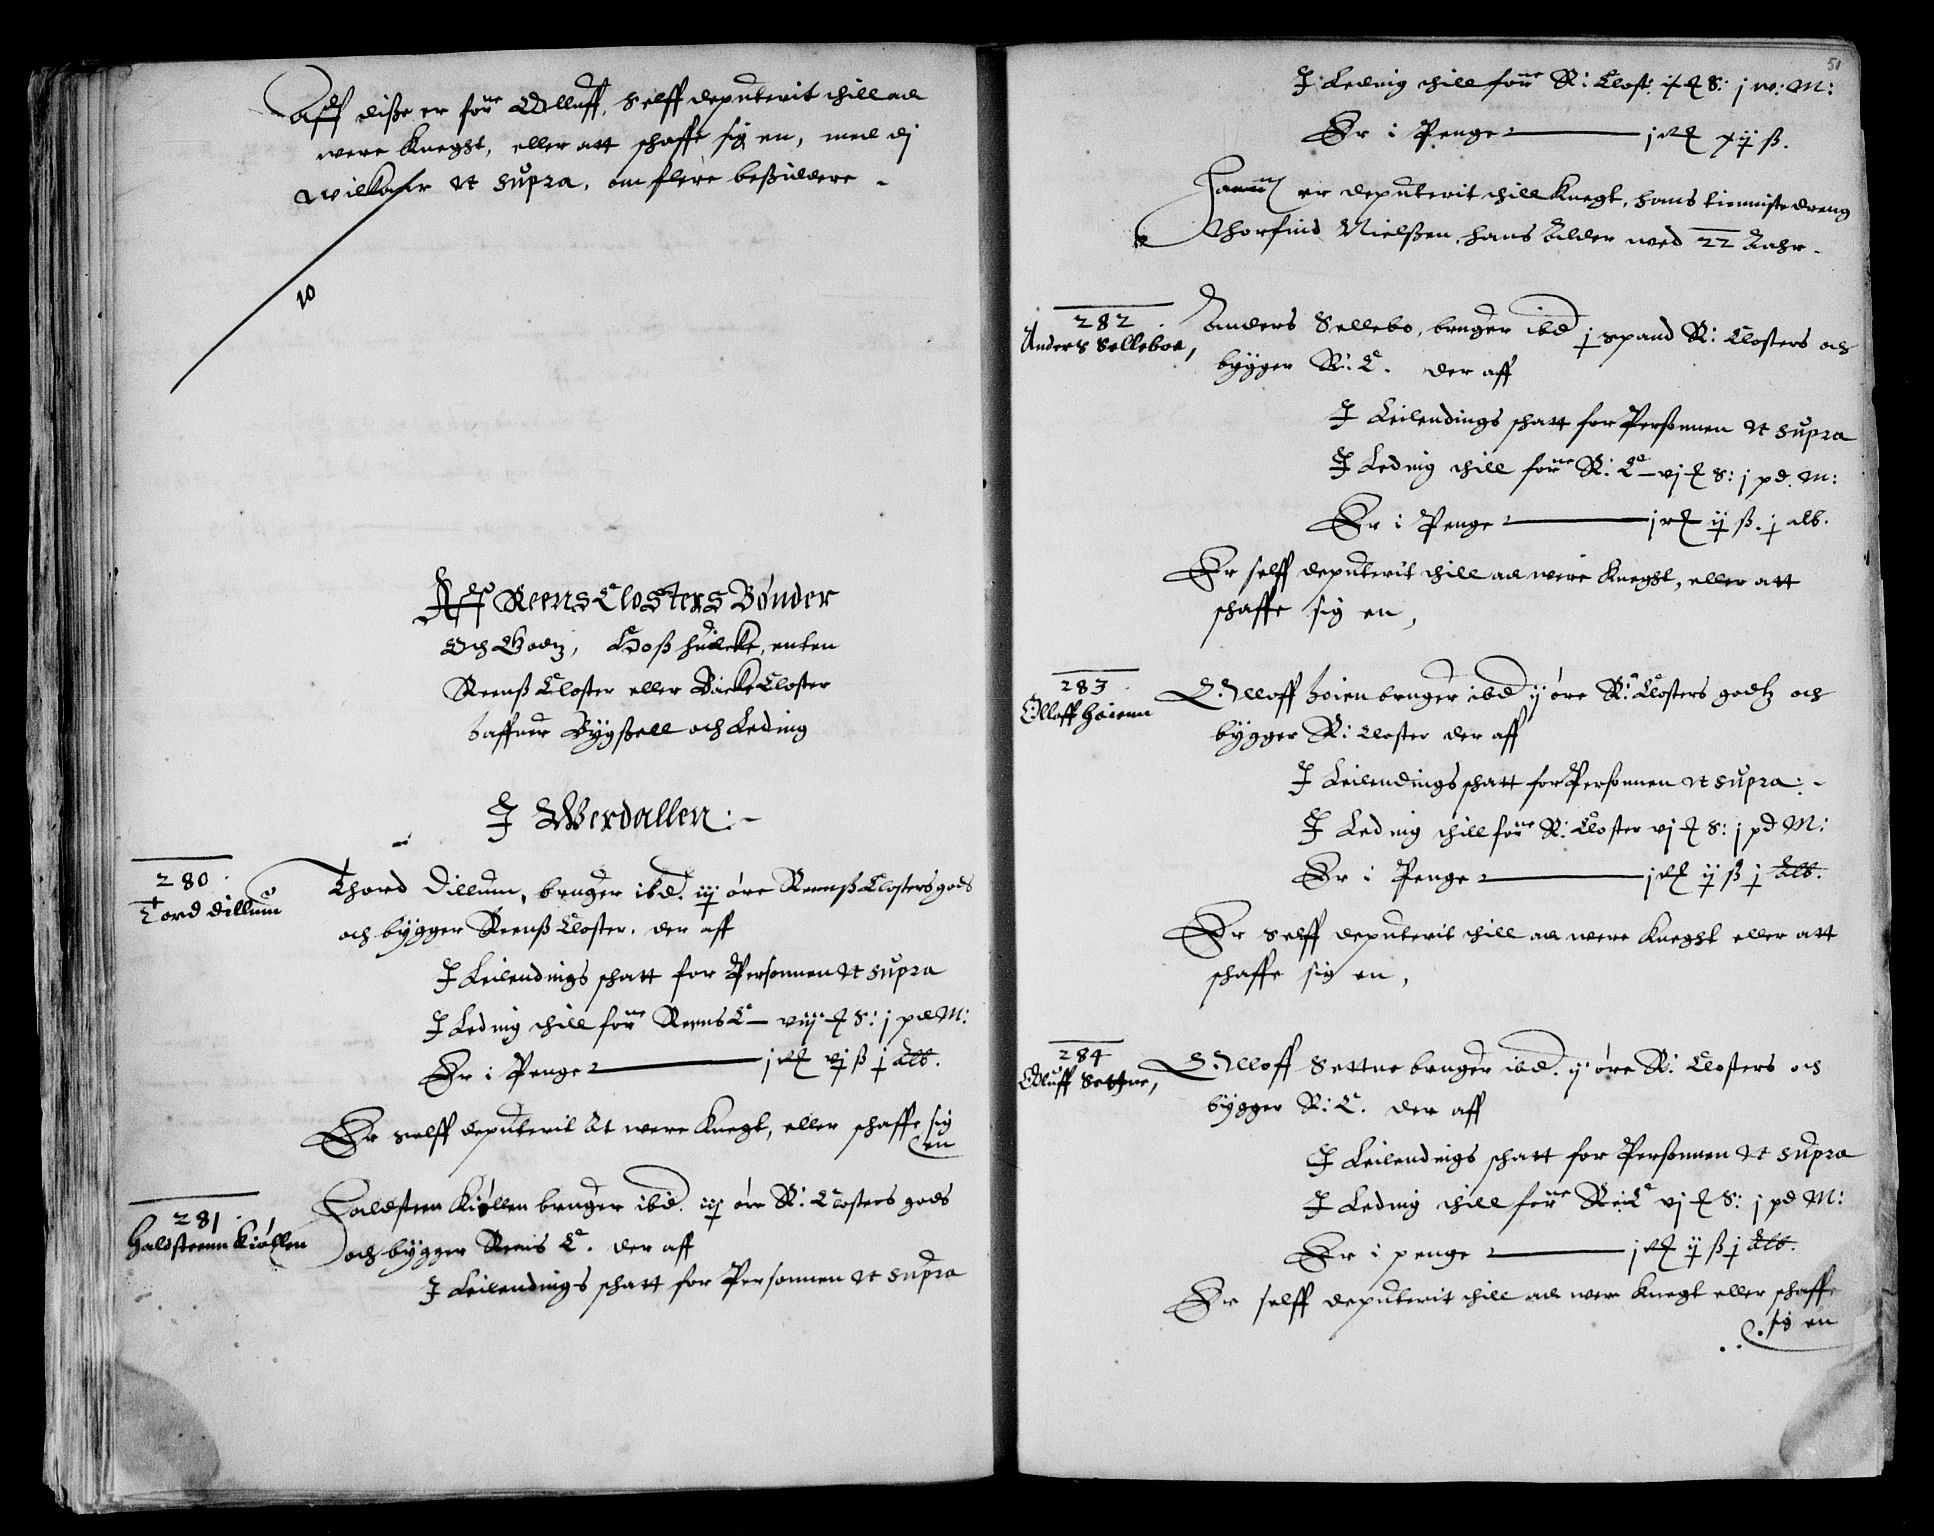 Aff diße er forne Olluff, Selff deputerit thill ad
were Kneght, eller att schaffe sig en, med dj
Wilkahr ut supra, om flere beßuldere
10
Aff Reens Closters Bønder
Och Godtz, Hoß huilcke, enten
Reenß Closter eller Backe Closter
haffuer Bÿgßell och Leding
J Werdallen:
280
Tord Dillum
Thord Dillum, bruger ibd. iij øre Reenß Closters gods
och bÿgger Reenß Closter. der aff
J Leilendings schatt for Personnen ut supra
J Leding thill forne Reens Cl viij S: j pd M:
Er i Penge j vj ß j alb.
Er selff deputerit At were Knegt, eller schaffe sig
en
281
Haldsteenn Kiøllen
Haldsteen Kiøllen bruger ibd. iij øre R: Closters gods
och bÿgger Reens Cl. der aff
J Leilendings schatt for Personnen ut supra
51
J Leding thill forne R: Clost: S: j w: M:
Er i Penge j xij ß.
er deputerit thill Knegt, hans tienniste dreng
Thorfind Nielßen, hans Alder wed 22 Aahr
282
Anders Selleboe,
Anders Sellebo, bruger ibd j spand R: Closters och
bÿgger R: Cl. der aff
J Leilendings schatt for Perßonnen ut supra
J Leding thill forne R: Cl vj S: j pd. M:
Er i Penge j ij ß. j alb.
Er selff deputerit thill ad were Kneght, eller att
schaffe sig en,
283
Olloff Høienn
Olloff høien bruger ibd ij øre R: Closters godtz och
bÿgger R: Closter der aff
J Leilendings schatt for Personnen ut supra:
J Leding thill forne R: Closter vj S: j pd M:
Er i Penge j ij ß j alb.
Er selff deputerit thill ad were Kneght eller att
schaffe sig en,
284
Olluff Settne,
Olloff Settne bruger ibd. ij øre R: Closters och
bÿgger R: Cl. der aff
J Leilendings schatt for Perßonnen ut supra
J Leding thill forne R: Cl vj S: j pd M:
Er i penge j ij ß j alb.
Er selff deputerit thill ad were Knegt eller schaffe
sig en